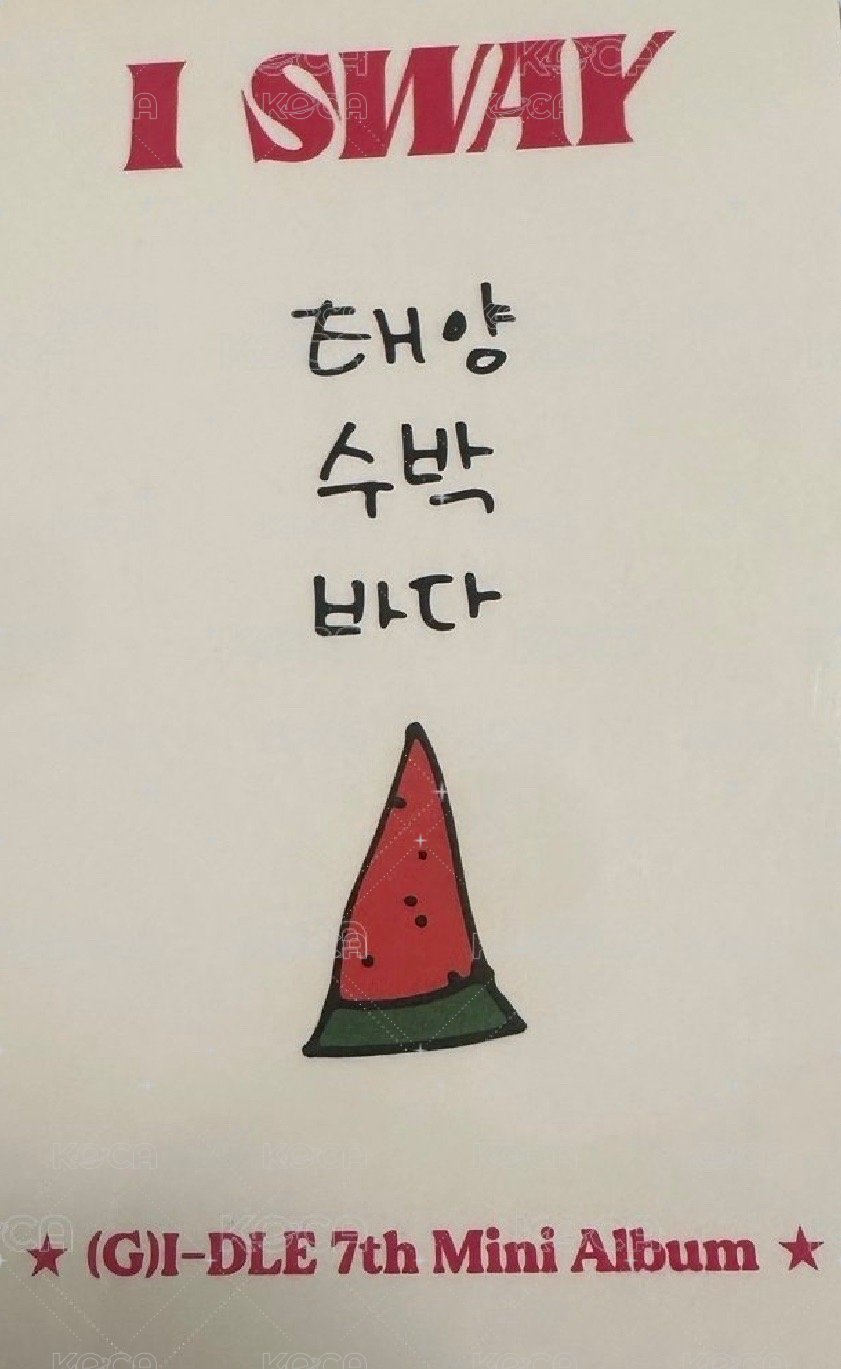 I SWAY
태양
수박
바다
★ (G)I-DLE 7th Mini Album ★